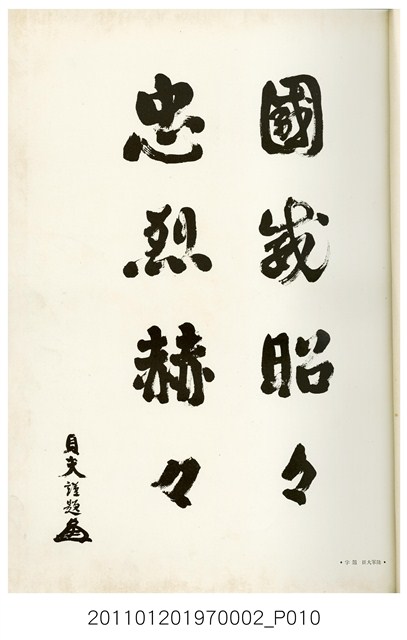 國威昭々
忠烈赫々
貞夫謹題
201101201970002_P010